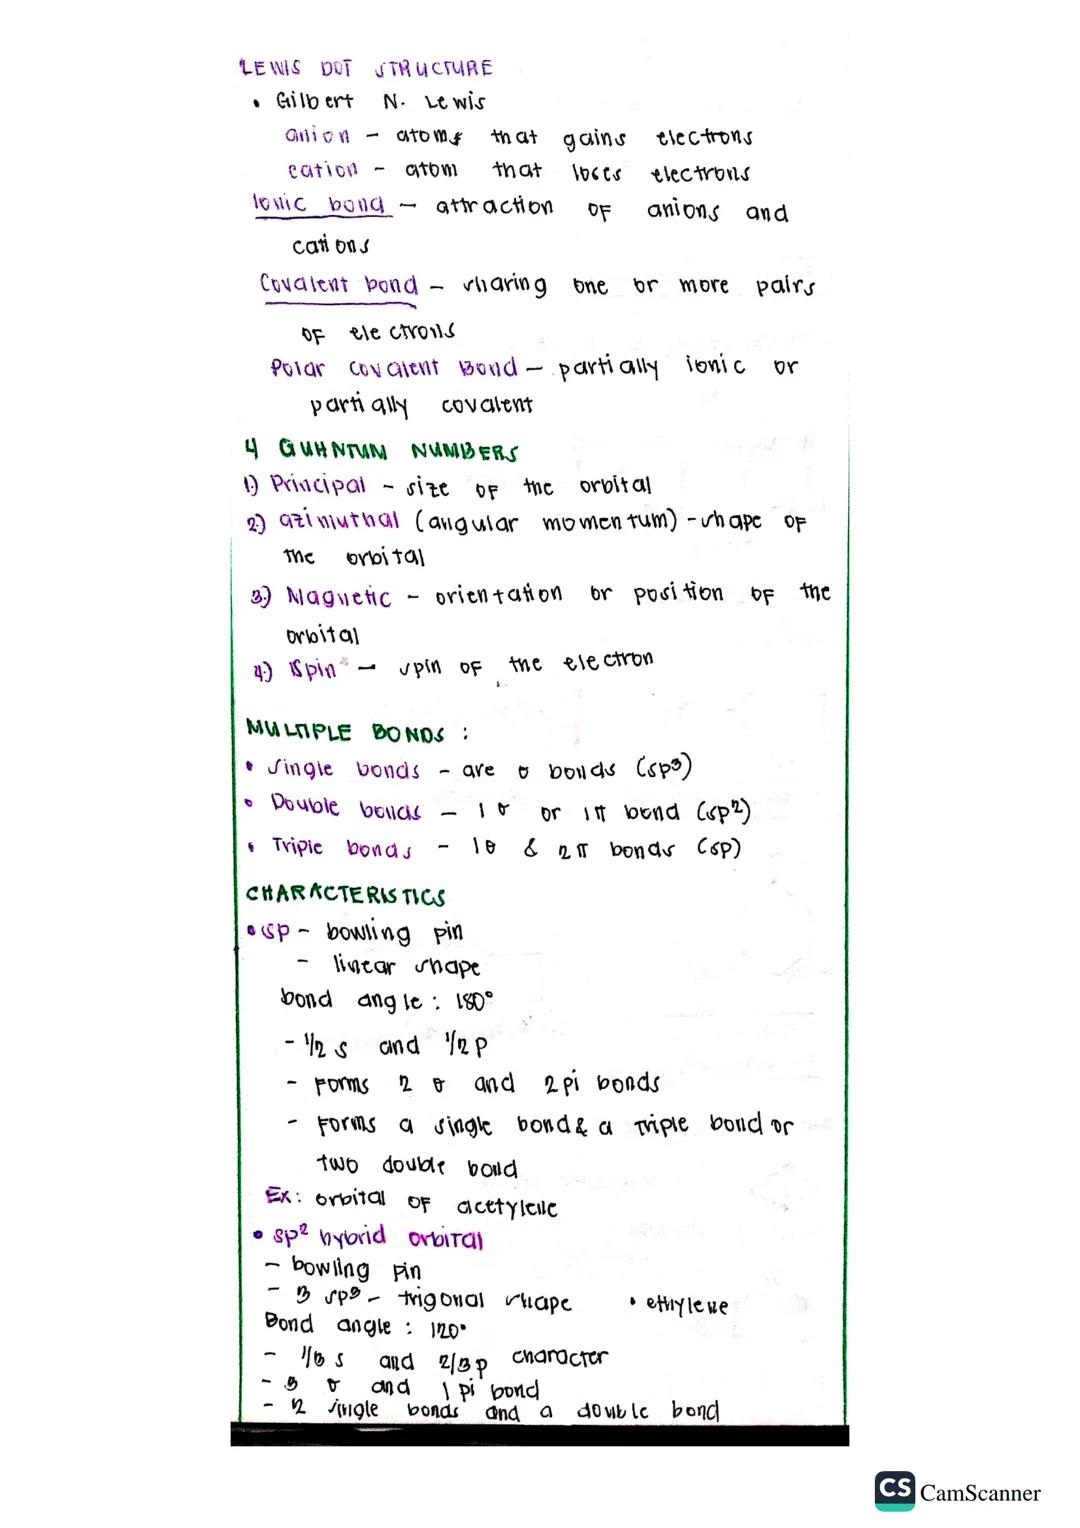 LEWIS DOT STRUCTURE
• Gilbert N. Lewis
anion - atoms that gains electrons
cation - atom that loses electrons
Ionic bond - attraction of anions and
cations
Covalent bond - sharing one or more pairs
of electrons
Polar Covalent Bond - partially ionic or
partially covalent
4 QUANTUM NUMBERS
1.) Principal - size of the orbital
2.) azimuthal (angular momentum) - shape of
the orbital
3.) Magnetic - orientation or position of the
orbital
4.) Spin - spin of the electron
MULTIPLE BONDS :
• Single bonds - are σ bonds (sp³)
• Double bonds - 1 σ or 1π bond (sp²)
• Triple bonds - 1σ & 2π bonds (sp)
CHARACTERISTICS
• sp - bowling pin
- linear shape
bond angle : 180°
- 1/2 s and 1/2 p
- forms 2 σ and 2 pi bonds
- forms a single bond & a triple bond or
two double bond
Ex: orbital of acetylene
• sp² hybrid orbital
- bowling pin
- 3 sp³ - trigonal shape • ethylene
Bond angle : 120°
- 1/3 s and 2/3 p character
- 3 σ and 1 pi bond
- 2 single bonds and a double bond
CS CamScanner